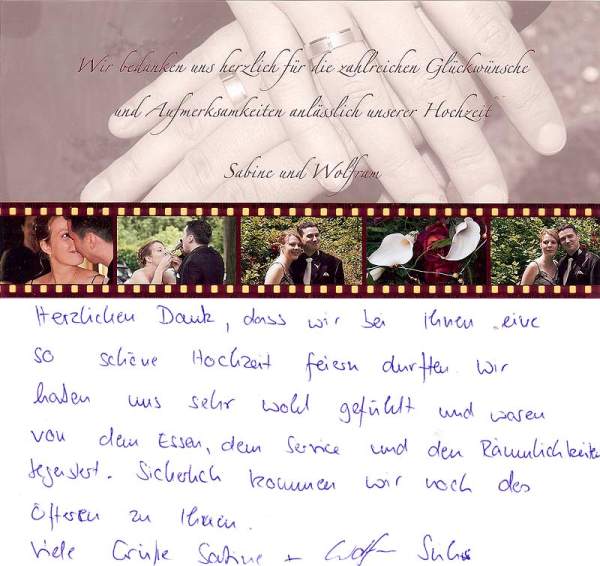 Wir bedanken uns herzlich für die zahlreichen Glückwünsche
und Aufmerksamkeiten anlässlich unserer Hochzeit
Sabine und Wolfram
Herzlichen Dank, dass wir bei Ihnen eine
so schöne Hochzeit feiern durften. Wir
haben uns sehr wohl gefühlt und waren
von dem Essen, dem Service und den Räumlichkeiten
begeistert. Sicherlich kommen wir noch des
Öfteren zu Ihnen.
Viele Grüße Sabine +